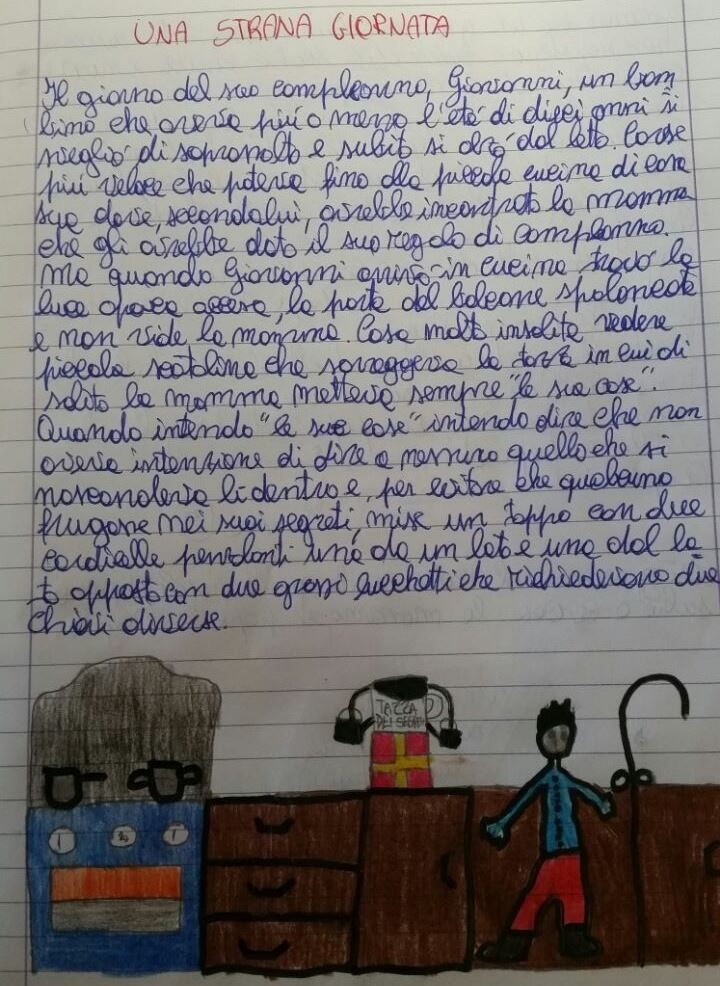 UNA STRANA GIORNATA
Il giorno del suo compleanno, Giovanni, un bam
bino che aveva più o meno l'età di dieci anni si
svegliò di soprasalto e subito si alzò dal letto. Corse
più veloce che poteva fino alla piccola cucina di casa
sua dove, secondo lui, avrebbe incontrato la mamma
che gli avrebbe dato il suo regalo di compleanno.
Ma quando Giovanni arrivò in cucina trovò la
luce opaca accesa, la porta del balcone spalancata
e non vide la mamma. Cosa molto insolita vedere
piccola scatolina che sorreggeva la tazza in cui di
solito la mamma metteva sempre "le sue cose".
Quando intendo "le sue cose" intendo dire che non
aveva intenzione di dire a nessuno quello che si
nascondeva li dentro e, per evitare che qualcuno
frugasse nei suoi segreti, mise un tappo con due
cordicelle pendenti una da un lato e una dal la
to opposto con due grossi lucchetti che richiedevano due
chiavi diverse.
TAZZA
DEI SEGRETI